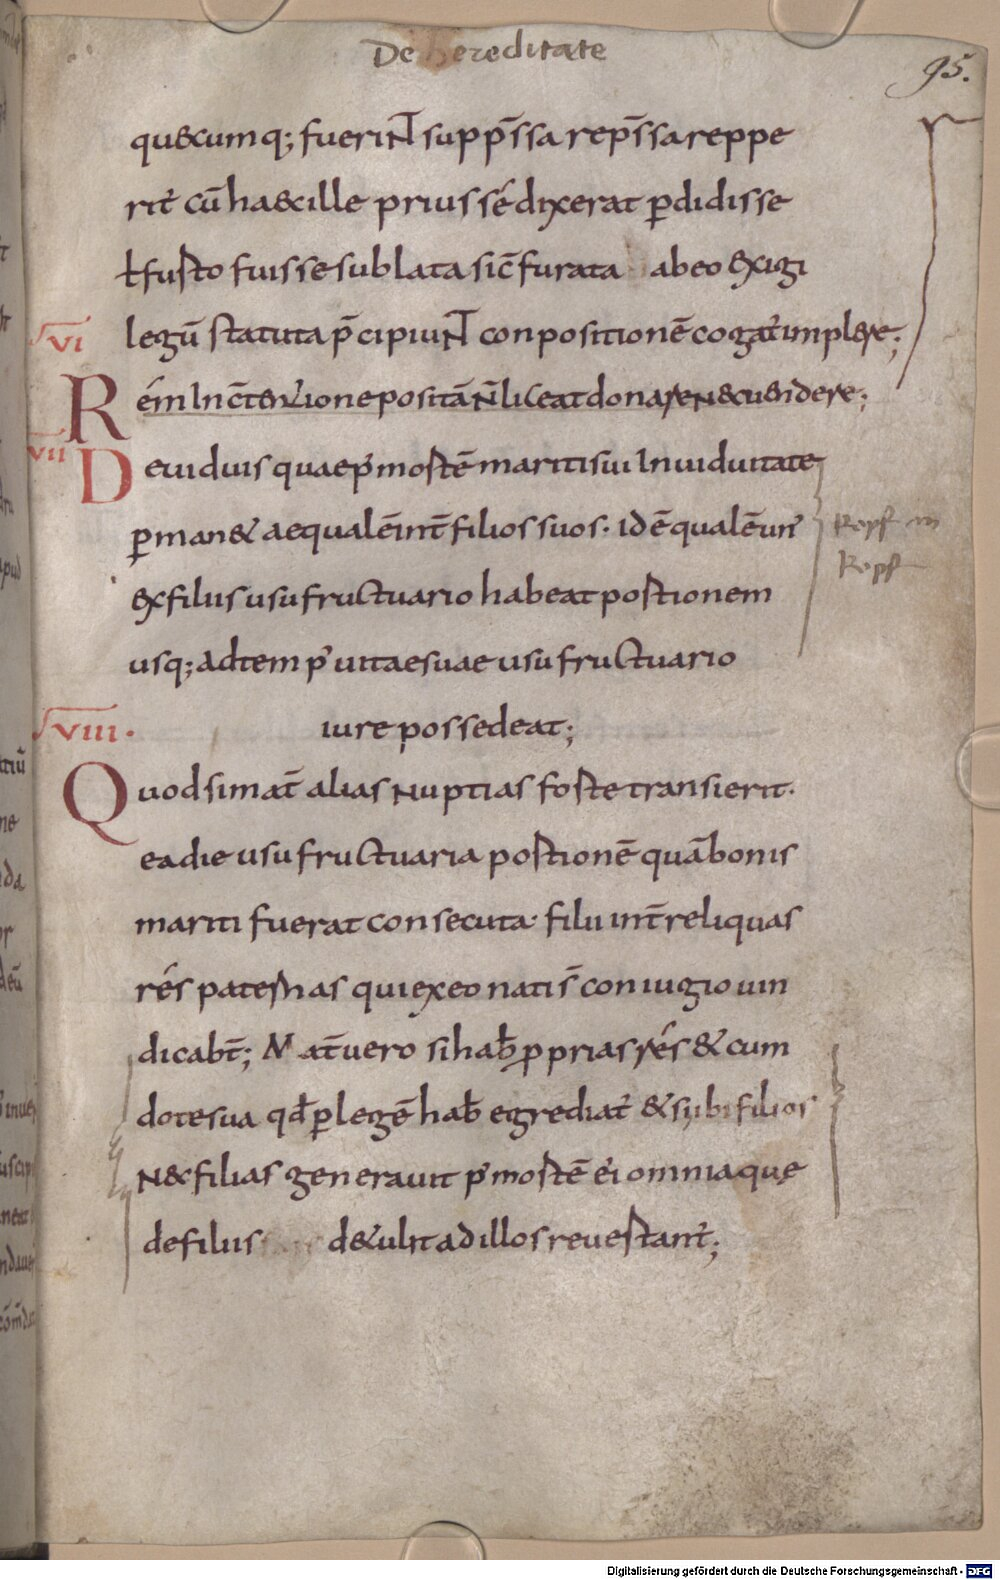 De hereditate
95.
qu&cumq; fueriNT supp̄ssa rep̄ssa reppe
rit̓ cū ha&c ille prius sé dixerat p̱didisse
ł fusto fuisse sublata sic̄ furata abeo exigi
VI
legū statuta p̄cipiuNT conpositionē cogat̓ implere;
Rém In c̄tentione positā N̄ liceat donare N&c uendere;
VII
De uiduis quae p̓ mortē mariti sui In uiduitate
p̱man& aequalē int̄ filios suos· id ē qualē un̓
ex filiis usufructuario habeat portionem
usq; ad temp̓ uitae suae usufructuario
VIII·
iure possedeat;
Quod si mat̄ alias Nuptias forte transierit·
ea die usufructuaria portionē quā bonis
mariti fuerat consecuta· filii int̄ reliquas
rés paternas qui ex eo natis̄ coniugio uin
dicabt̄; Mat̄ uero si hab̄ p̱prias rés & cum
dote sua qd̄ p̱ legē hab̄ egrediat̓ & si ibi filios
N&c filias generauit p̓ mortē ei̓ omnia quę
de filiis d&ulit ad illos reuertant̓;
Ropf in
Ropf
Digitalisierung gefördert durch die Deutsche Forschungsgemeinschaft - DFG